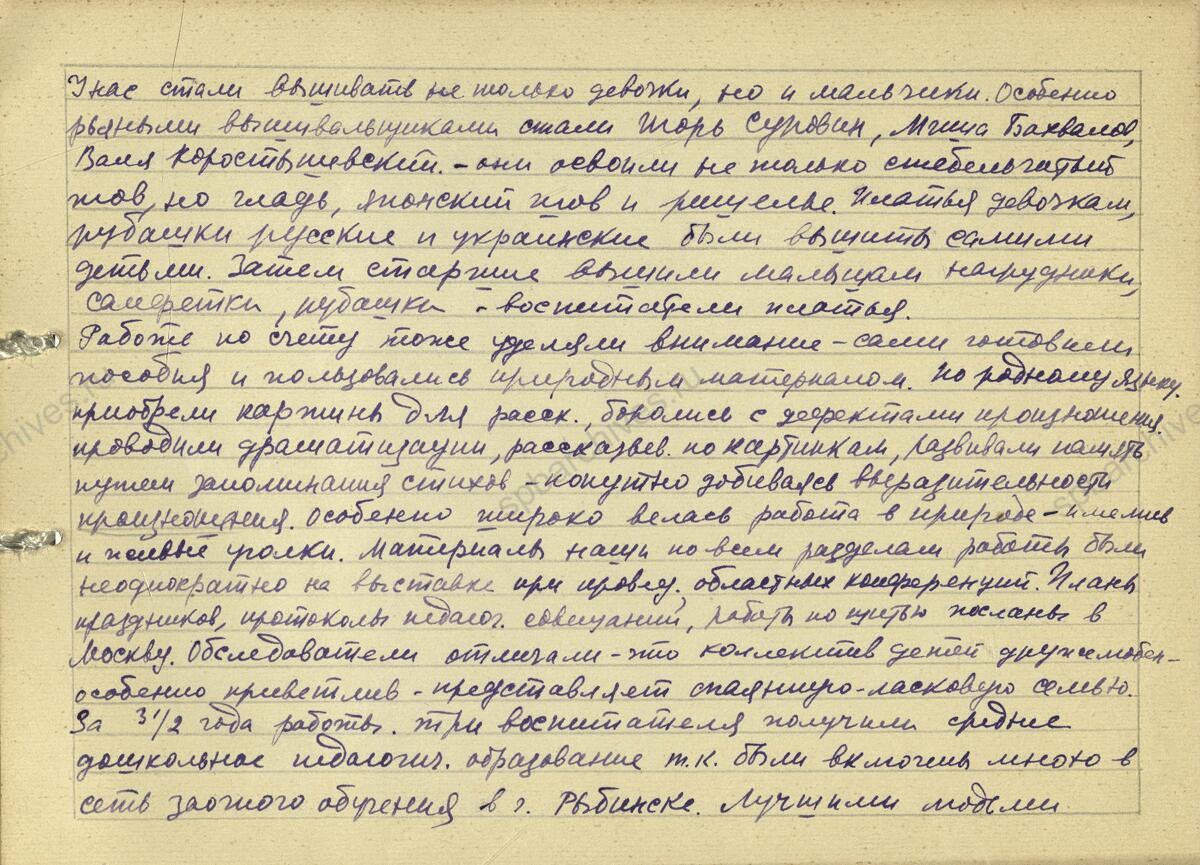 У нас стали вышивать не только девочки, но и мальчики. Особенно
рьяными вышивальщиками стали Игорь Суровин, Миша Бахвалов,
Валя Коростышевский. – они освоили не только стебельчатый
шов, но гладь, японский шов и ришелье. Платья девочкам,
рубашки русские и украинские были вышиты самими
детьми. Затем старшие вышили малышам нагрудники,
салфетки, рубашки – воспитатели платья.
Работе по счету тоже уделяли внимание – сами готовили
пособия и пользовались природным материалом. По родному языку.
приобрели картины для расск., боролись с дефектами произношения
проводили драматизации, рассказыв. по картинкам, развивали память
путем запоминания стихов – попутно добиваясь выразительности
произношения. Особенно широко велась работа в природе – имелись
и живые уголки. Материалы наши по всем разделам работы были
неоднократно на выставке при провед. областных конференций. Планы
праздников, протоколы педагог. совещаний, работы по шитью посланы в
Москву. Обследователи отмечали – что коллектив детей дружелюбен –
особенно приветлив – представляет спаянную – ласковую семью.
За 3 1/2 года работы. три воспитателя получили средне
дошкольное педагогич. образование т.к. были включены мною в
сеть заочного обучения в г. Рыбинске. Лучшими людьми
spbarchives.ru